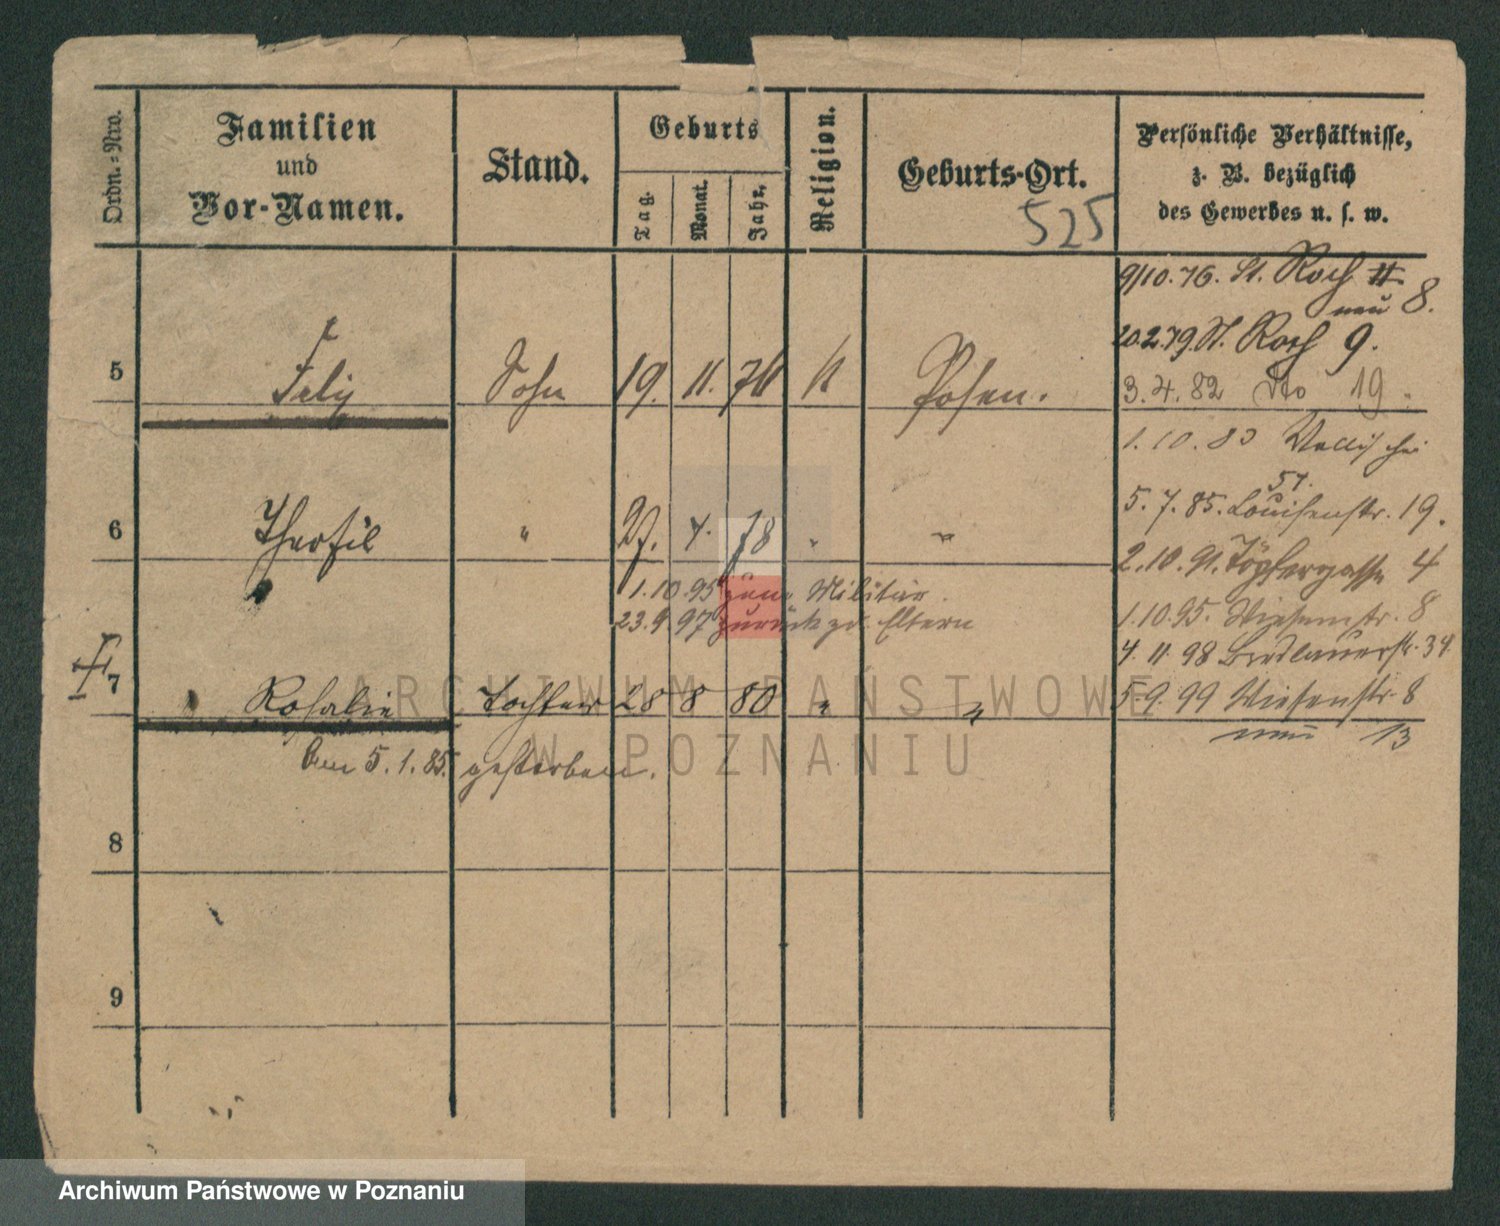 Ordn.=Nro.
Familien
und
Vor-Namen.
Stand.
Geburts
Tag.
Monat.
Jahr.
Religion.
Geburts-Ort.
525
Persönliche Verhältnisse,
z. B. bezüglich
des Gewerbes u. s. w.
9/10.76. St. Roch 11
neu 8.
20.2.79. St. Roch 9.
5 Felix Sohn 19. 11. 76 k Posen.
3.4.82 dto 19.
1.10.83 Wallischei
57.
5.7.85. Louisenstr. 19.
6 Theofil " 27. 4. 78 " "
2.10.91. Töpfergasse 4
1.10.95 zum Militär.
1.10.95. Wiesenstr. 8
23.9.97 zurück zd. Eltern
4.11.98 Breslauerstr. 34
7 Rosalie Tochter 28 8 80 " "
5.9.99 Wiesenstr. 8
neu 13
am 5.1.85. gestorben.
8
9
ARCHIWUM PAŃSTWOWE
W POZNANIU
Archiwum Państwowe w Poznaniu